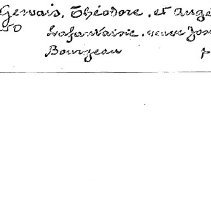 Gervais, Théodore, et Ange
50 Lafantaisie, veuve Jos
Bourgeau